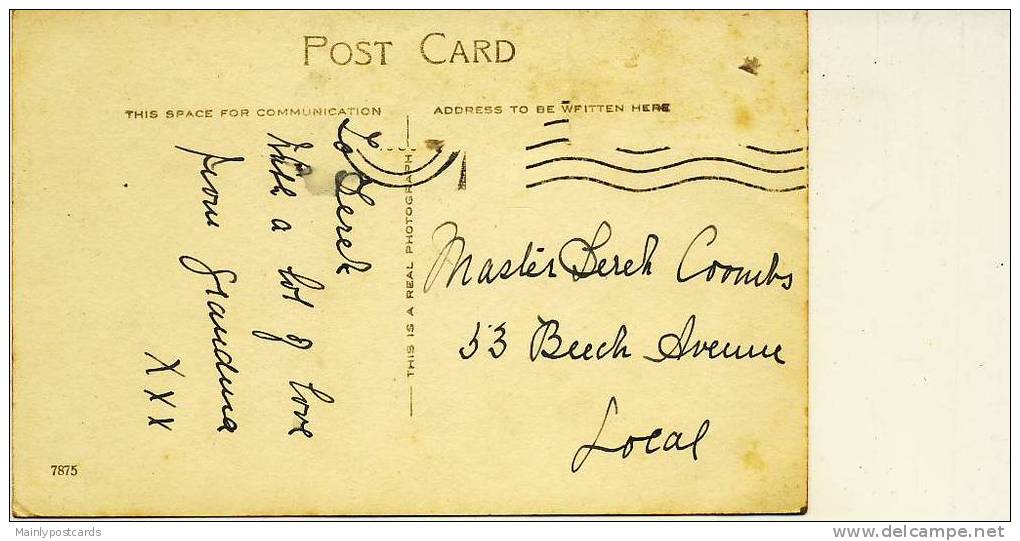 POST CARD
THIS SPACE FOR COMMUNICATION
ADDRESS TO BE WRITTEN HERE
To Derek
With a lot of love
from Grandma
XXX
THIS IS A REAL PHOTOGRAPH
Master Derek Coombs
53 Beech Avenue
Local
7875
Mainlypostcards
www.delcampe.net